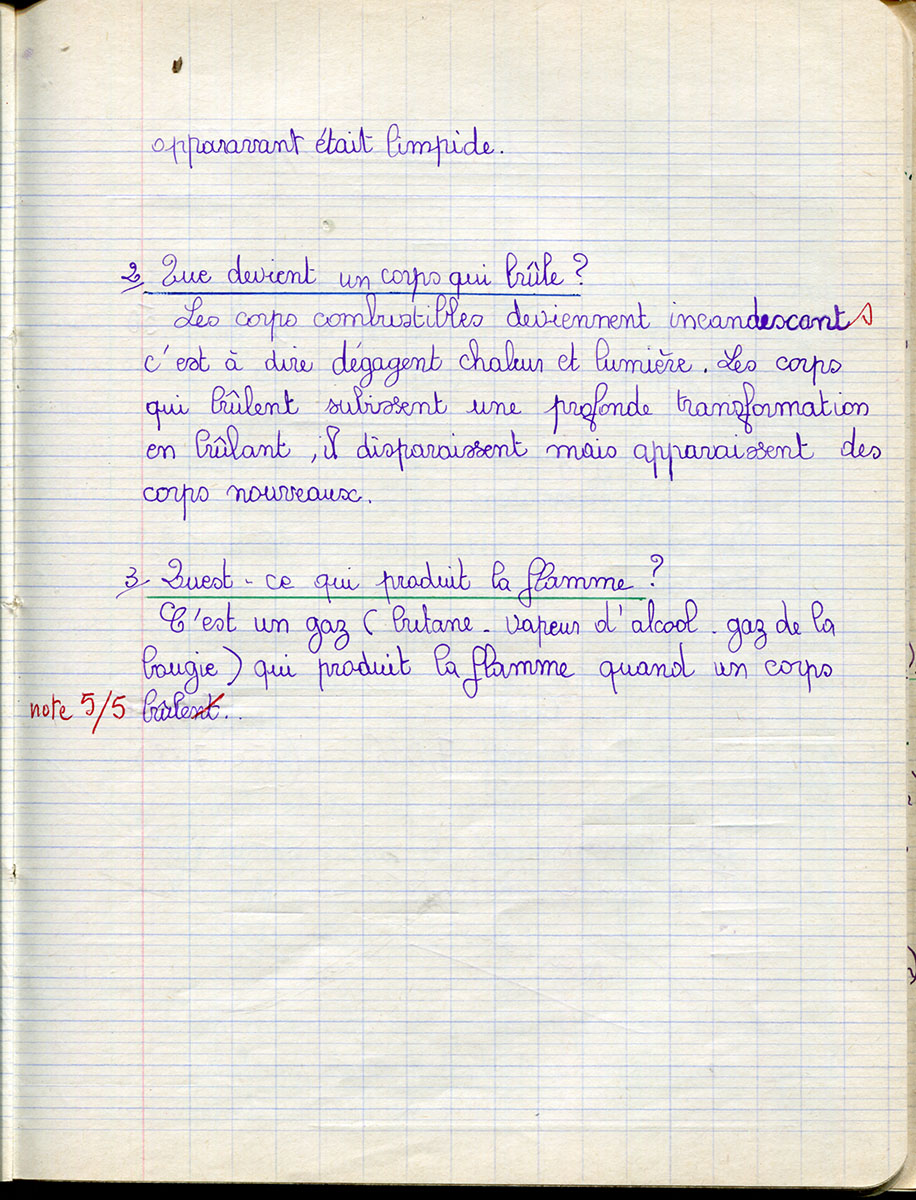 apparavant était limpide.
2 Que devient un corps qui brûle ?
Les corps combustibles deviennent incandescants
c'est à dire dégagent chaleur et lumière. Les corps
qui brûlent subissent une profonde transformation
en brûlant, il disparaissent mais apparaissent des
corps nouveaux.
3 Quest-ce qui produit la flamme ?
C'est un gaz ( butane - vapeur d'alcool - gaz de la
bougie ) qui produit la flamme quand un corps
note 5/5 brûlent..